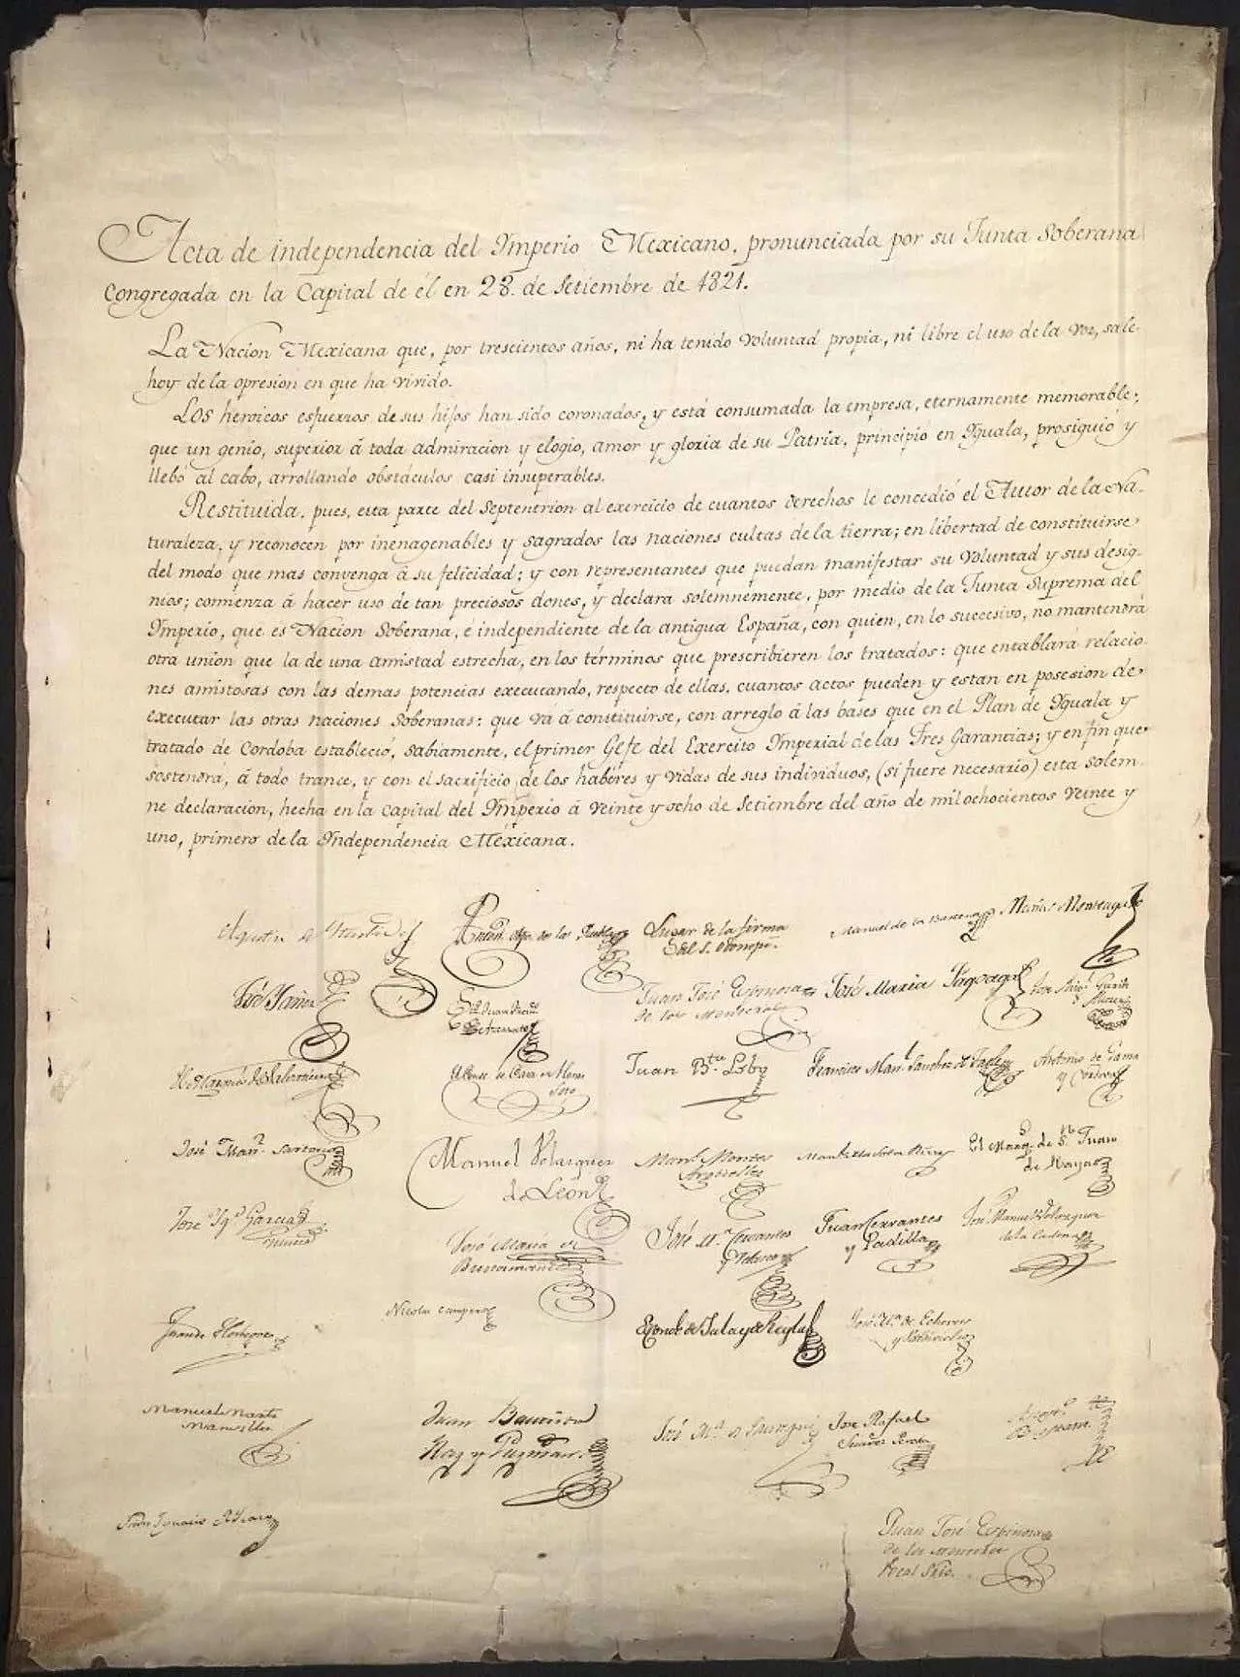 Acta de independencia del Imperio Mexicano, pronunciada por su Junta Soberana
congregada en la Capital de él en 28. de Setiembre de 1821.
La Nacion Mexicana que, por trescientos años, ni ha tenido voluntad propia, ni libre el uso de la voz, sale
hoy de la opresion en que ha vivido.
Los heroicos esfuerzos de sus hijos han sido coronados, y está consumada la empresa, eternamente memorable,
que un genio, superior á toda admiracion y elogio, amor y gloria de su Patria, principió en Iguala, prosiguió y
llebó al cabo, arrollando obstáculos casi insuperables.
Restituida, pues, esta parte del Septentrion al exercicio de cuantos derechos le concedió el Autor de la Na-
turaleza, y reconocen por inenagenables y sagrados las naciones cultas de la tierra; en libertad de constituirse
del modo que mas convenga á su felicidad; y con representantes que puedan manifestar su voluntad y sus desig-
nios; comienza á hacer uso de tan preciosos dones, y declara solemnemente, por medio de la Junta Suprema del
Imperio, que es Nacion Soberana, é independiente de la antigua España, con quien, en lo succesivo, no mantendrá
otra union que la de una amistad estrecha, en los términos que prescribieren los tratados: que entablará relacio-
nes amistosas con las demas potencias executando, respecto de ellas, cuantos actos pueden y estan en posesion de
executar las otras naciones Soberanas: que vá á constituirse, con arreglo á las bases que en el Plan de Iguala y
tratado de Cordoba estableció, sabiamente, el primer Gefe del Exercito Imperial de las Tres Garantias; y en fin que
sostendrá, á todo trance, y con el sacrificio de los haberes y vidas de sus individuos, (si fuere necesario) esta solem-
ne declaracion, hecha en la Capital del Imperio á veinte y ocho de Setiembre del año de mil ochocientos veinte y
uno, primero de la Independencia Mexicana.
Agustin de Iturbide
Lugar de la firma
Manuel de la Barcena
Matias Monteagudo
José Yañez
Juan José Espinosa
de los Monteros
José Maria Fagoaga
Juan Bta. Lobo
Francisco Man.l Sanchez de Tagle
Antonio de Gama
y Cordova
José Man.l Sartorio
Manuel Velazquez
de León
Man.l Montes
Arguelles
El Marq.s de S.n Juan
de Rayas
José Ign.o Garcia
José Maria de
Bustamante
José M.a Cervantes
y Velasco
Juan Cervantes
y Padilla
José Manuel Velazquez
de la Cadena
Juan de Horbegoso
Nicolas Campero
José M.a de Echevers
Manuel Martz
Mansilla
Juan Bautista
Raz y Guzman
José Rafael
Suarez Pereda
Juan José Espinosa
de los Monteros
Vocal Srio.